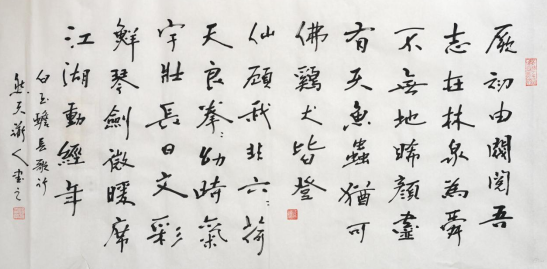 厥初由闢闔吾
志在林泉為舜
不無地晞顏盍
有天魚蟲猶可
佛鷄犬皆登
仙顧我非六〻荷
天良拳〻幼時氣
宇壯長日文彩
鮮琴劍微暖席
江湖動經年
白玉蟾長歌行
天人書之